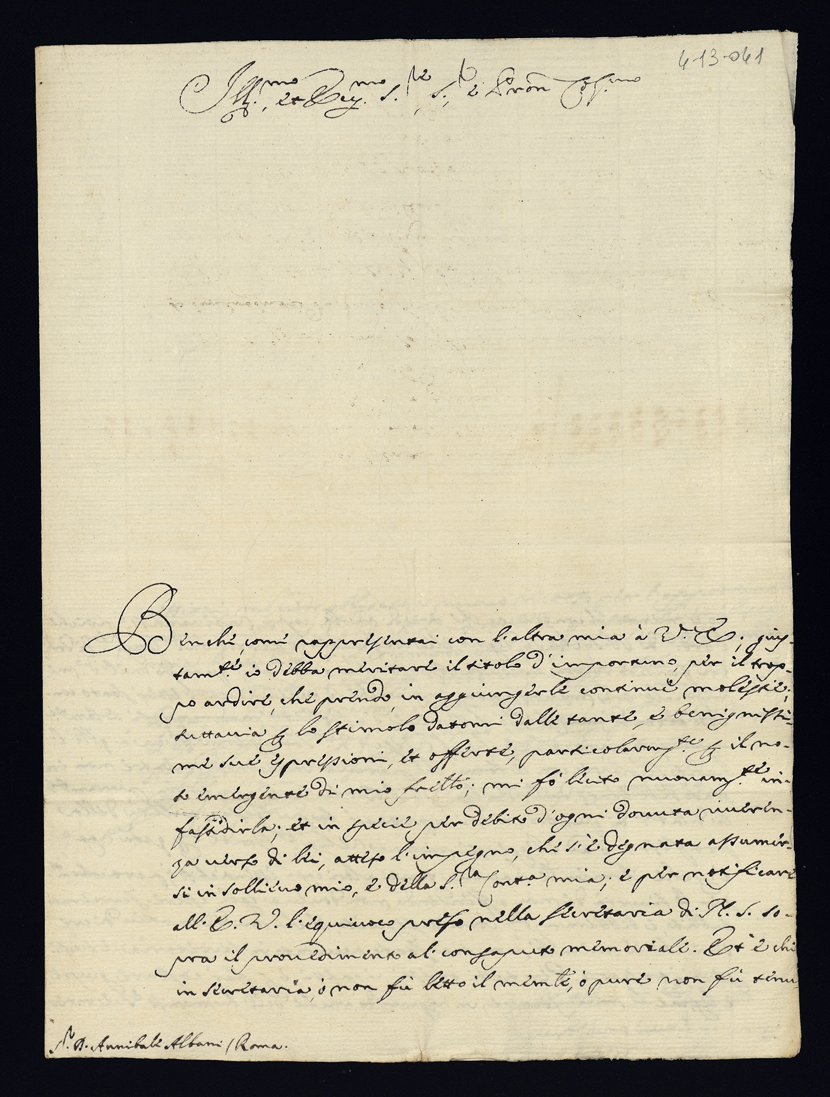 4-13-041
Ill.mo et Rev.mo S.re, S.r e Pron Col.mo
Benche, come rappresentai con l'altra mia à V. E., gius-
tam.te io debba meritare il titolo d'importuno, per il trop-
po ardire, che prendo, in aggiungerle continue molestie;
tuttavia lo stimolo datomi dalle tante, e benignissi-
me sue espressioni, et offerte, particolarm.te il no-
to emergente di mio fratello; mi fò lecito nuovam.te in-
fastidirla; et in specie per debito d'ogni dovuta riveren-
za verso di lei, atteso l'impegno, che s'è degnata assumer-
si in sollievo mio, e della S.ra Cont.a mia; e per notificare
all'E. V. l'equivoco preso nella secretaria di N. S. so-
pra il provedimento al consaputo memoriale. Et è che
in secretaria, ò non fù letto il mem.le, ò pure non fù tenu
S.r D. Annibale Albani / Roma.